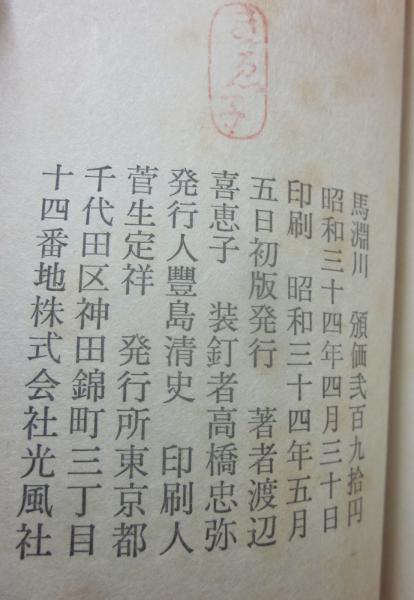 馬淵川　頒価弐百九拾円
昭和三十四年四月三十日
印刷　昭和三十四年五月
五日初版発行　著者渡辺
喜恵子　装釘者高橋忠弥
発行人豊島清史　印刷人
菅生定祥　発行所東京都
千代田区神田錦町三丁目
十四番地株式会社光風社